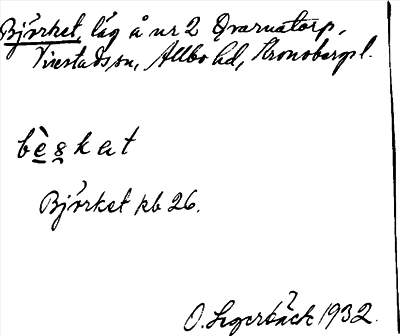 Björket, låg å nr 2 Qvarnatorp,
Virestads sn, Allbo hd, Kronobergs l.
bèsket
Björket kb 26.
O. Segerbäck 1932.